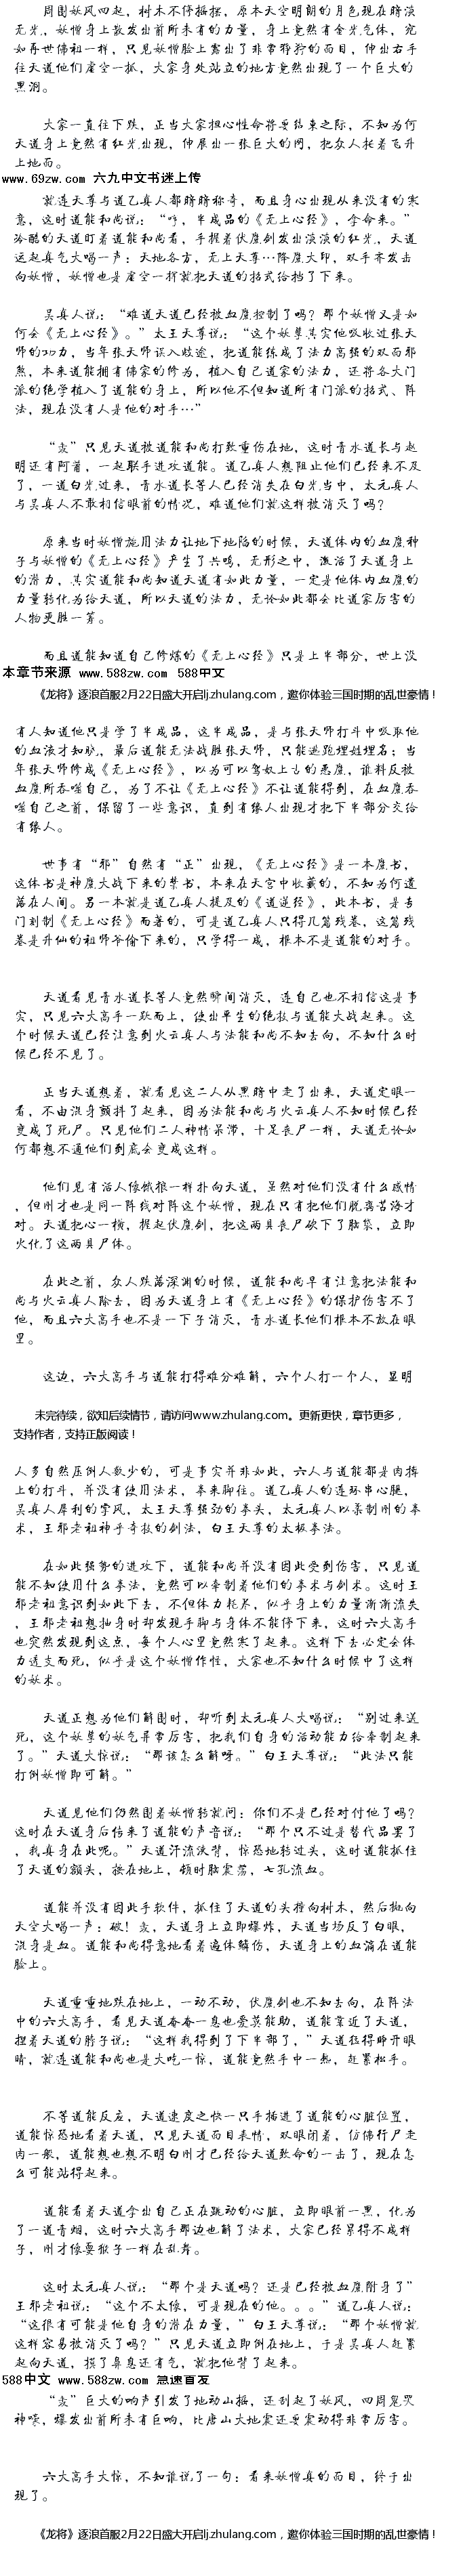 周围妖风四起，树木不停摇摆，原本天空明朗的月色现在暗淡
无光，妖憎身上散发出前所未有的力量，身上竟然有金光气体，宛
如再世佛祖一样，只见妖憎脸上露出了非常狰狞的面目，伸出右手
往天道他们虚空一抓，大家身处站立的地方竟然出现了一个巨大的
黑洞。
大家一直往下跌，正当大家担心性命将要结束之际，不知为何
天道身上竟然有红光出现，伸展出一张巨大的网，把众人托着飞升
上地面。
www.69zw.com 六九中文书迷上传
就连天尊与道乙真人都暗暗称奇，而且身心出现从来没有的寒
意，这时道能和尚说：“哼，半成品的《无上心经》，拿命来。”
冷酷的天道盯着道能和尚看，手握着伏魔剑发出淡淡的红光，天道
运起真气大喝一声：天地各方，无上天尊…降魔大印，双手齐发击
向妖憎，妖憎也是虚空一挥就把天道的招式给挡了下来。
吴真人说：“难道天道已经被血魔控制了吗？那个妖憎又是如
何会《无上心经》。”太王天尊说：“这个妖孽其实他吸收过张天
师的功力，当年张天师误入歧途，把道能练成了法力高强的双面邪
煞，本来道能拥有佛家的修为，植入自己道家的法力，还将各大门
派的绝学植入了道能的身上，所以他不但知道所有门派的招式、阵
法，现在没有人是他的对手…”
“轰”只见天道被道能和尚打致重伤在地，这时青水道长与赵
明还有阿莆，一起联手进攻道能。道乙真人想阻止他们已经来不及
了，一道白光过来，青水道长等人已经消失在白光当中，太元真人
与吴真人不敢相信眼前的情况，难道他们就这样被消灭了吗？
原来当时妖憎施用法力让地下地陷的时候，天道体内的血魔种
子与妖憎的《无上心经》产生了共鸣，无形之中，激活了天道身上
的潜力，其实道能和尚知道天道有如此力量，一定是他体内血魔的
力量转化为给天道，所以天道的法力，无论如此都会比道家厉害的
人物更胜一筹。
而且道能知道自己修炼的《无上心经》只是上半部分，世上没
本章节来源 www.588zw.com 588中文
《龙将》逐浪首服2月22日盛大开启lj.zhulang.com，邀你体验三国时期的乱世豪情！
有人知道他只是学了半成品，这半成品，是与张天师打斗中吸取他
的血液才知晓，最后道能无法战胜张天师，只能逃跑埋姓埋名；当
年张天师修成《无上心经》，以为可以驾奴上古的恶魔，谁料反被
血魔所吞噬自己，为了不让《无上心经》不让道能得到，在血魔吞
噬自己之前，保留了一些意识，直到有缘人出现才把下半部分交给
有缘人。
世事有“邪”自然有“正”出现，《无上心经》是一本魔书，
这体书是神魔大战下来的禁书，本来在天宫中收藏的，不知为何遗
落在人间。另一本就是道乙真人提及的《道逆经》，此本书，是专
门刻制《无上心经》而著的，可是道乙真人只得几篇残卷，这篇残
卷是升仙的祖师爷偷下来的，只学得一成，根本不是道能的对手。
天道看见青水道长等人竟然瞬间消灭，连自己也不相信这是事
实，只见六大高手一跃而上，使出毕生的绝技与道能大战起来。这
个时候天道已经注意到火云真人与法能和尚不知去向，不知什么时
候已经不见了。
正当天道想着，就看见这二人从黑暗中走了出来，天道定眼一
看，不由浑身颤抖了起来，因为法能和尚与火云真人不知时候已经
变成了死尸。只见他们二人神情呆滞，十足丧尸一样，天道无论如
何都想不通他们到底会变成这样。
他们见有活人像饿狼一样扑向天道，虽然对他们没有什么感情
，但刚才也是同一阵线对阵这个妖憎，现在只有把他们脱离苦海才
对。天道把心一横，握起伏魔剑，把这两具丧尸砍下了脑袋，立即
火化了这两具尸体。
在此之前，众人跌落深渊的时候，道能和尚早有注意把法能和
尚与火云真人除去，因为天道身上有《无上心经》的保护伤害不了
他，而且六大高手也不是一下子消灭，青水道长他们根本不放在眼
里。
这边，六大高手与道能打得难分难解，六个人打一个人，显明
未完待续，欲知后续情节，请访问www.zhulang.com。更新更快，章节更多，
支持作者，支持正版阅读！
人多自然压倒人数少的，可是事实并非如此，六人与道能都是肉搏
上的打斗，并没有使用法术，拳来脚往。道乙真人的连环串心腿，
吴真人犀利的掌风，太王天尊强劲的拳头，太元真人以柔制刚的拳
术，王邪老祖神乎奇技的剑法，白王天尊的太极拳法。
在如此强势的进攻下，道能和尚并没有因此受到伤害，只见道
能不知使用什么拳法，竟然可以牵制着他们的拳术与剑术。这时王
邪老祖意识到如此下去，不但体力托尽，似乎身上的力量渐渐流失
，王邪老祖想抽身时却发现手脚与身体不能停下来，这时六大高手
也突然发现到这点，每个人心里竟然寒了起来。这样下去必定会体
力透支而死，似乎是这个妖憎作怪，大家也不知什么时候中了这样
的妖术。
天道正想为他们解围时，却听到太元真人大喝说：“别过来送
死，这个妖孽的妖气异常厉害，把我们自身的活动能力给牵制起来
了。”天道大惊说：“那该怎么解呀。”白王天尊说：“此法只能
打倒妖憎即可解。”
天道见他们仍然围着妖憎转就问：你们不是已经对付他了吗？
这时在天道身后传来了道能的声音说：“那个只不过是替代品罢了
，我真身在此呢。”天道汗流浃背，惊恐地转过头，这时道能抓住
了天道的额头，按在地上，顿时脑震荡，七孔流血。
道能并没有因此手软件，抓住了天道的头撞向树木，然后抛向
天空大喝一声：破！轰，天道身上立即爆炸，天道当场反了白眼，
浑身是血。道能和尚得意地看着遍体鳞伤，天道身上的血滴在道能
脸上。
天道重重地跌在地上，一动不动，伏魔剑也不知去向，在阵法
中的六大高手，看见天道奋奋一息也爱莫能助，道能靠近了天道，
捏着天道的脖子说：“这样我得到了下半部了，”天道猛得睁开眼
睛，就连道能和尚也是大吃一惊，道能竟然手中一热，赶紧松手。
不等道能反应，天道速度之快一只手插进了道能的心脏位置，
道能惊恐地看着天道，只见天道面目表情，双眼闭着，仿佛行尸走
肉一般，道能想也想不明白刚才已经给天道致命的一击了，现在怎
么可能站得起来。
道能看着天道拿出自己正在跳动的心脏，立即眼前一黑，化为
了一道青烟，这时六大高手那边也解了法术，大家已经累得不成样
子，刚才像耍猴子一样在乱舞。
这时太元真人说：“那个是天道吗？还是已经被血魔附身了”
王邪老祖说：“这个不太像，可是现在的他。。。”道乙真人说：
“这很有可能是他自身的潜在力量，”白王天尊说：“那个妖憎就
这样容易被消灭了吗？”只见天道立即倒在地上，于是吴真人赶紧
起向天道，摸了鼻息还有气，就把他背了起来。
588中文 www.588zw.com 急速首发
“轰”巨大的响声引发了地动山摇，还刮起了妖风，四周鬼哭
神嚎，爆发出前所未有巨响，比唐山大地震还要震动得非常厉害。
六大高手大惊，不知谁说了一句：看来妖憎真的面目，终于出
现了。
《龙将》逐浪首服2月22日盛大开启lj.zhulang.com，邀你体验三国时期的乱世豪情！